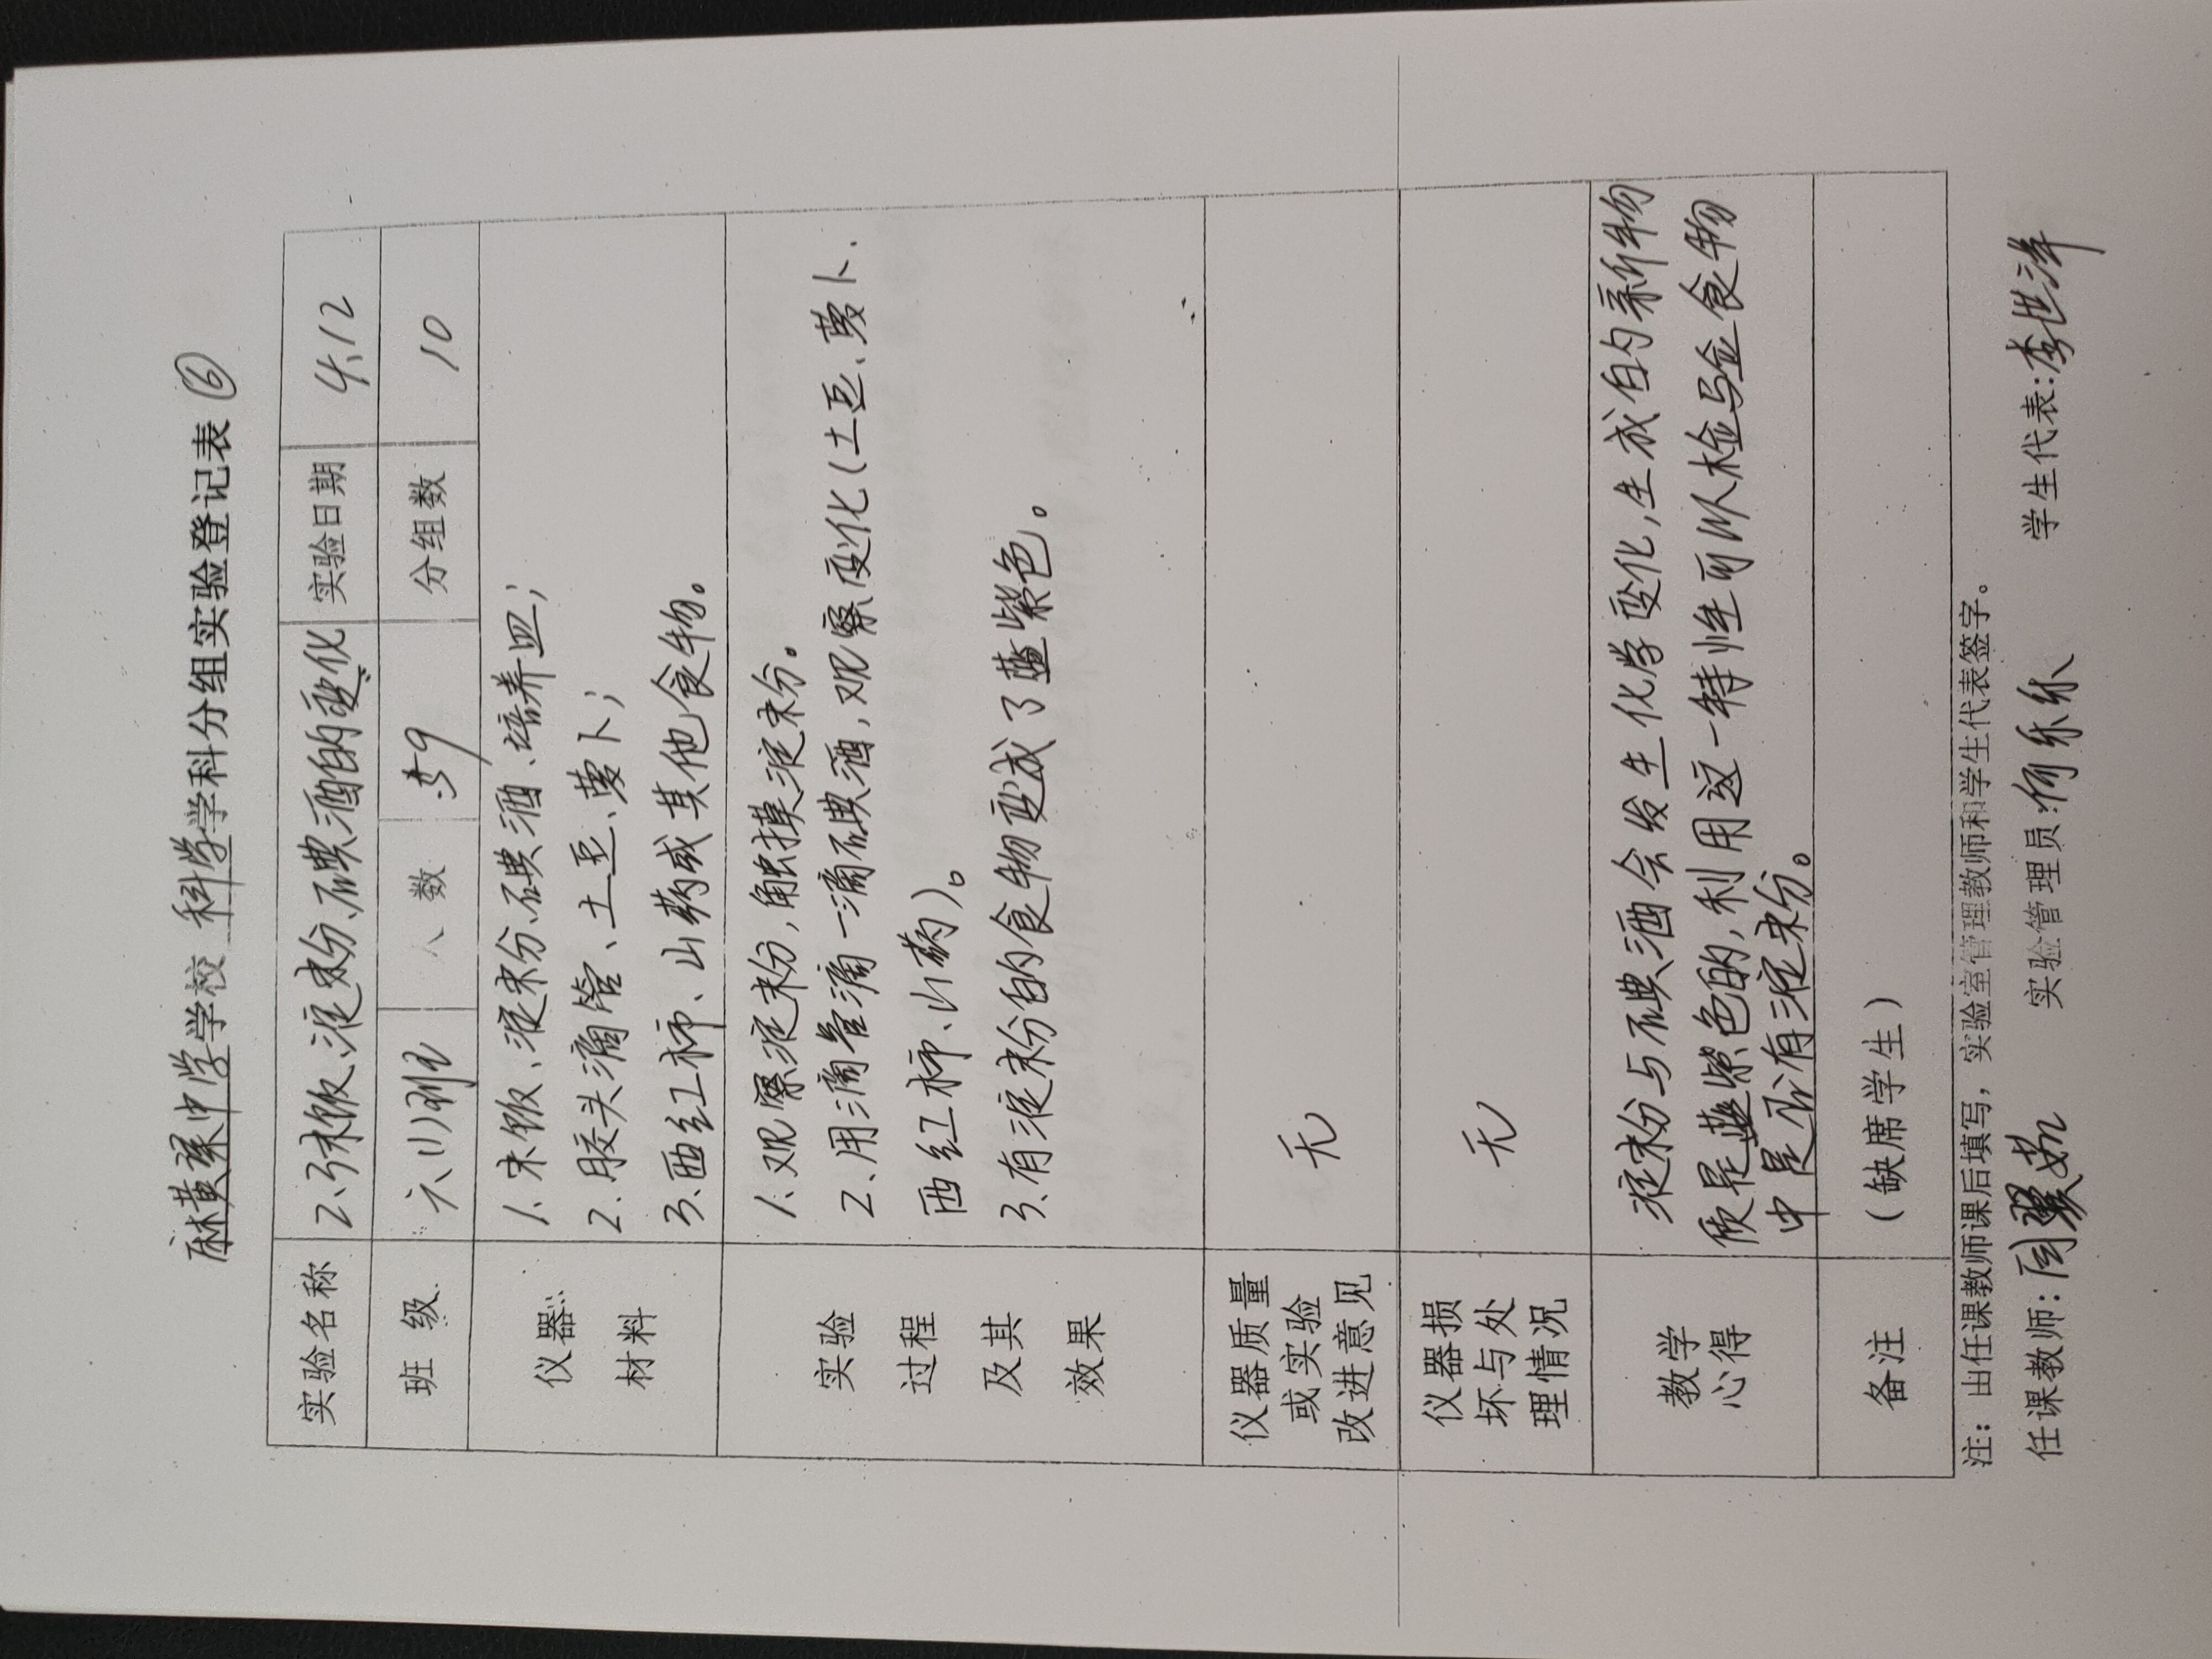 麻黄梁中学学校 科学学科分组实验登记表 ⑥
实验名称 2.3米饭、淀粉、碘酒的变化 实验日期 4.12
班 级 六(1)班 人 数 59 分组数 10
仪器 材料
1. 米饭、淀粉、碘酒、培养皿；
2. 胶头滴管、土豆、萝卜；
3. 西红柿、山药或其他食物。
实验 过程 及其 效果
1. 观察淀粉，触摸淀粉。
2. 用滴管滴一滴碘酒，观察变化(土豆、萝卜、
西红柿、山药)。
3. 有淀粉的食物变成了蓝紫色。
仪器质量
或实验
改进意见
无
仪器损
坏与处
理情况
无
教学
心得
淀粉与碘酒会发生化学变化，生成的新物
质是蓝紫色的，利用这一特性可以检验食物
中是否有淀粉。
备注 (缺席学生)
注：由任课教师课后填写，实验室管理教师和学生代表签字。
任课教师： 实验管理员： 学生代表：李世洋